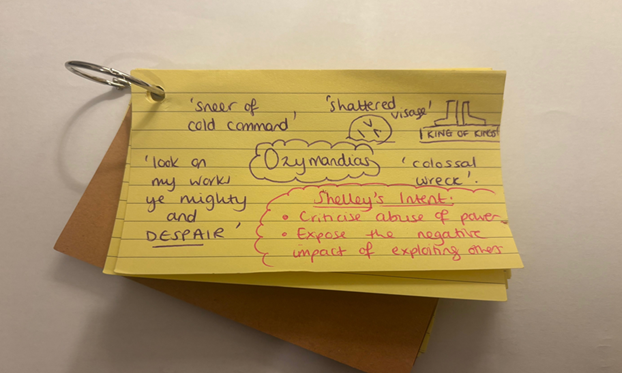 'sneer of
cold command'
'shattered
visage'
KING OF KINGS
Ozymandias
'look on
my works
ye mighty
and
DESPAIR'
'colossal
wreck'.
Shelley's Intent:
• Criticise abuse of power
• Expose the negative
impact of exploiting others